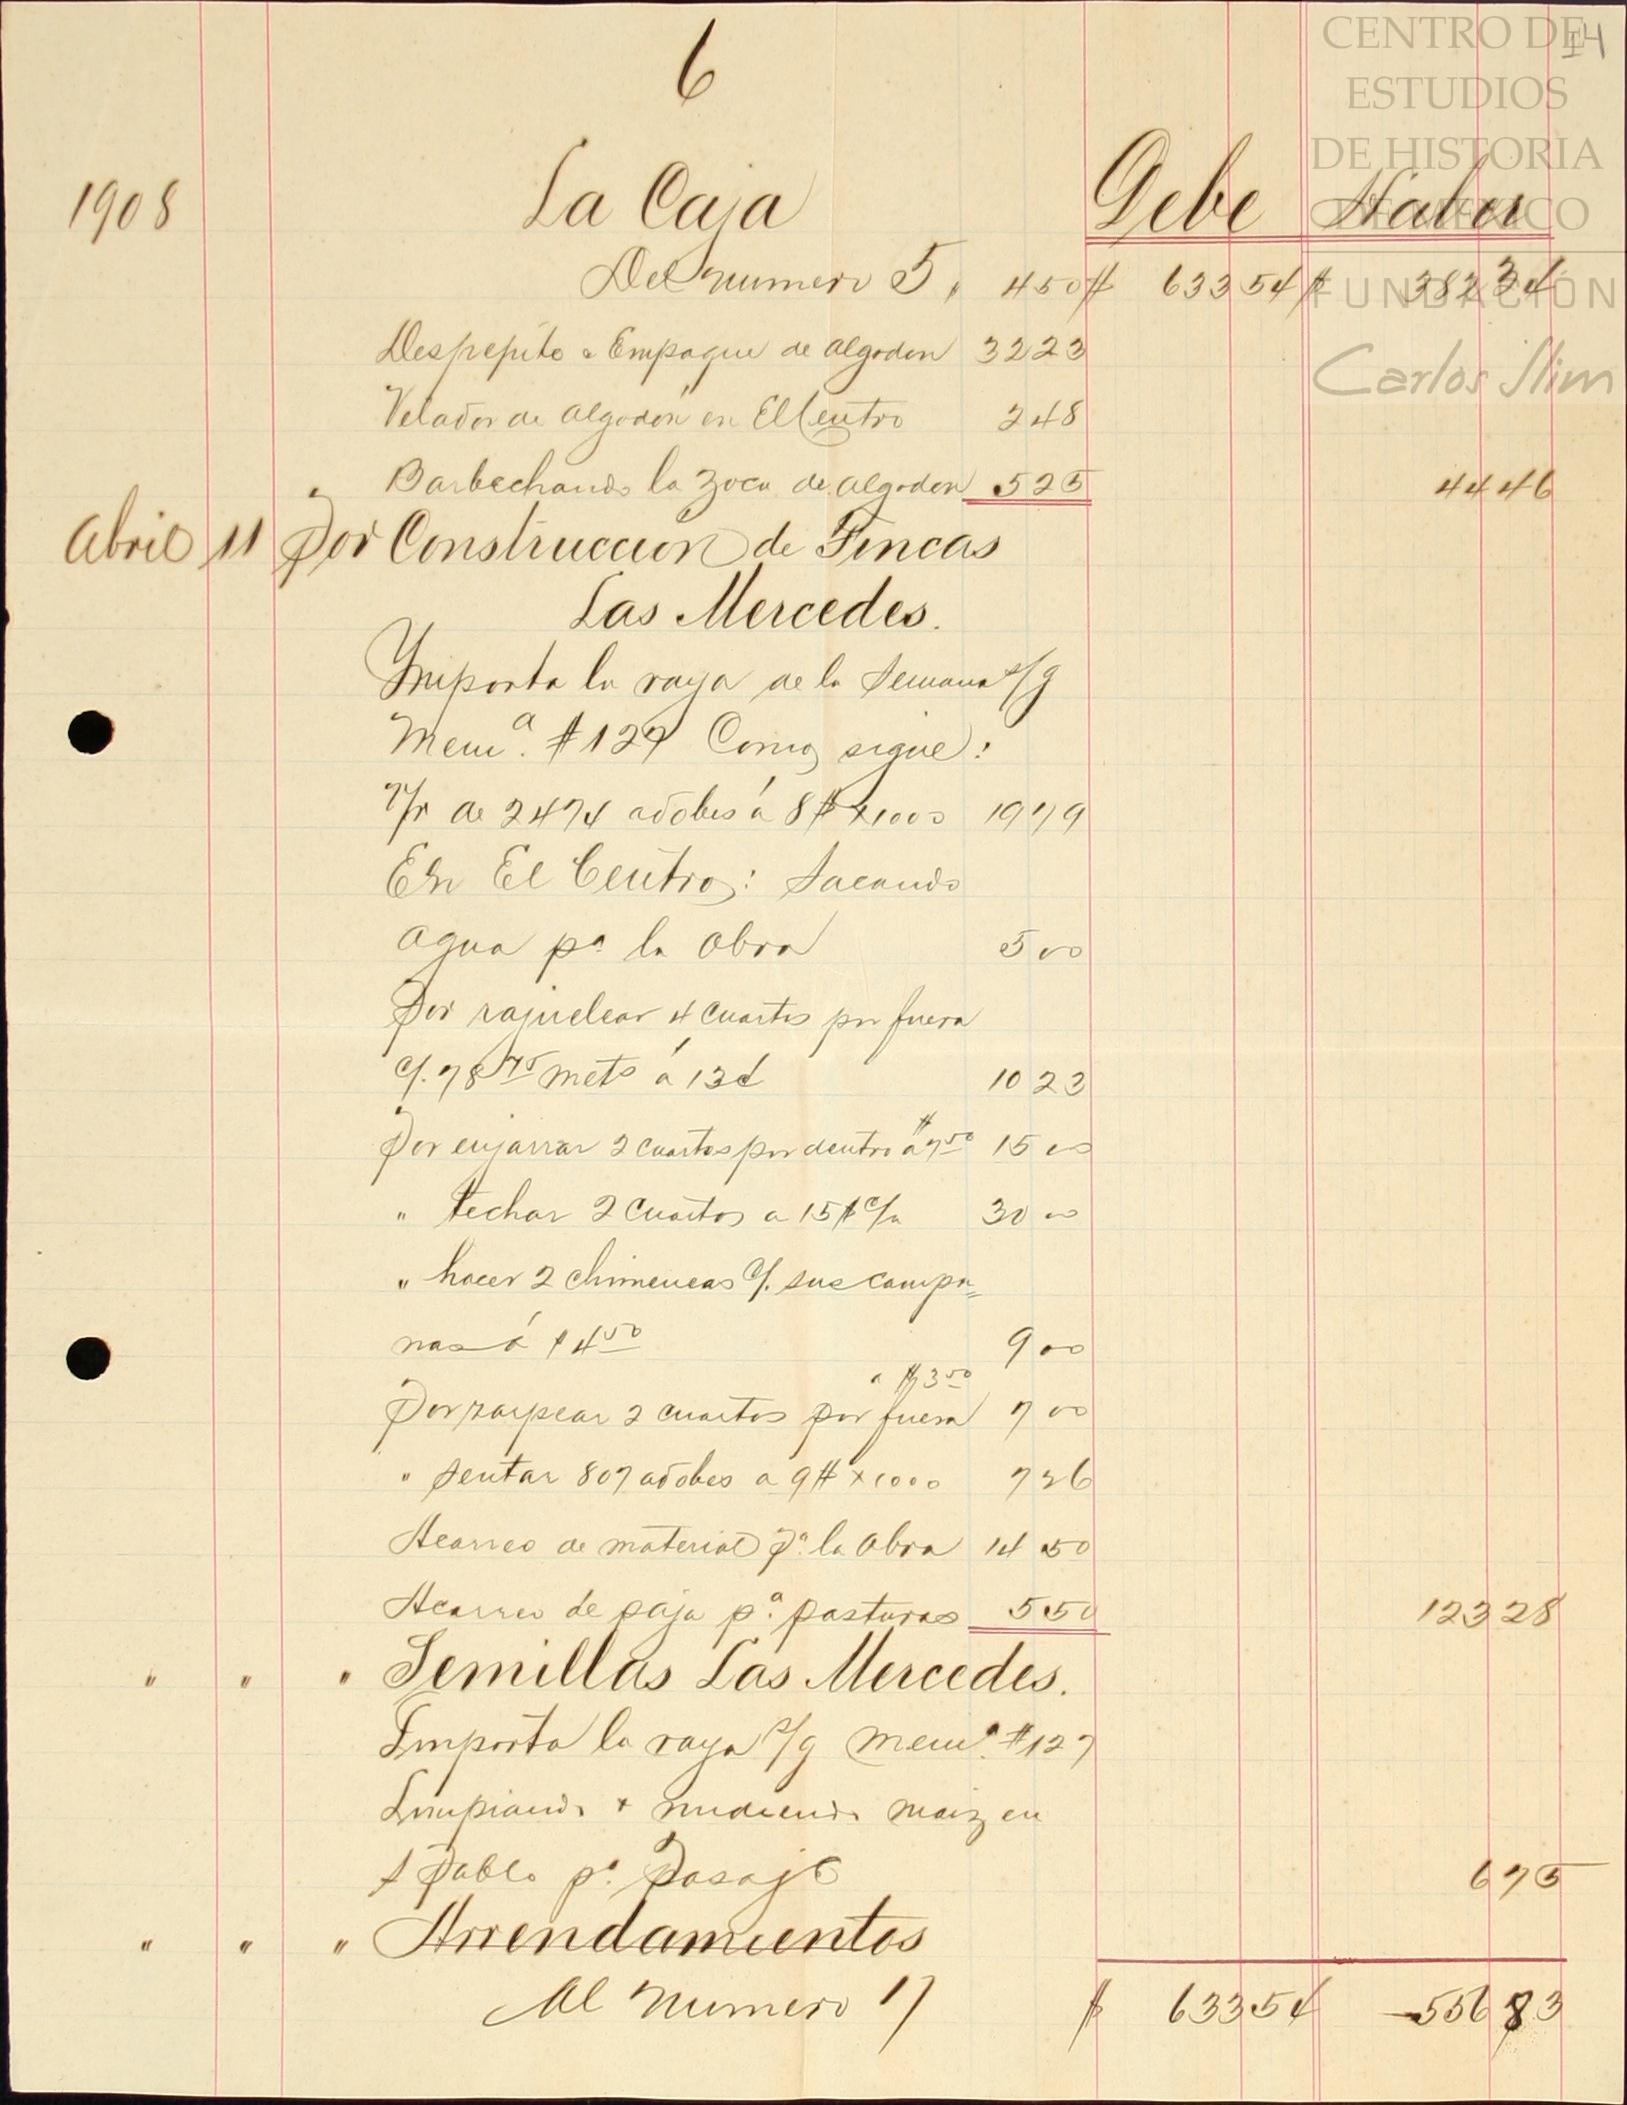 6
14
CENTRO DE
ESTUDIOS
DE HISTORIA
DE MÉXICO
FUNDACIÓN
Carlos Slim
1908 La Caja Debe Haber
Del numero 5, 4 50 $ 633 54 $ 382 34
Despepite & Empaque de algodon 32 23
Velador de algodon en El Centro 2 48
" Barbechando la zoca de algodon 5 25 44 46
Abril 11 Por Construccion de Fincas
Las Mercedes.
Importa la raya de la semana s/g
Mem.ª #127 Como sigue:
P/r de 2474 adobes á 8$ x 1000 19 79
En El Centro: Sacando
agua pª la obra 5 00
Por rajuelear 4 cuartos por fuera
c/. 78 75 mets á 13¢ 10 23
Por enjarrar 2 cuartos por dentro á $7 50 15 00
" techar 2 cuartos a 15$ c/u 30 00
" hacer 2 chimeneas c/. sus campa=
nas á $ 4 50 9 00
a $3 50
Por zarpear 2 cuartos por fuera 7 00
" sentar 807 adobes a 9$ x 1000 7 26
Acarreo de material pª la obra 14 50
Acarreo de paja pª pasturas 5 50 123 28
" " " Semillas Las Mercedes.
Importa la raya s/g Mem.ª #127
Limpiando & midiendo maiz en
S Pablo pª Pasaje 6 75
" " " Arrendamientos
Al numero 7 $ 633 54 556 83